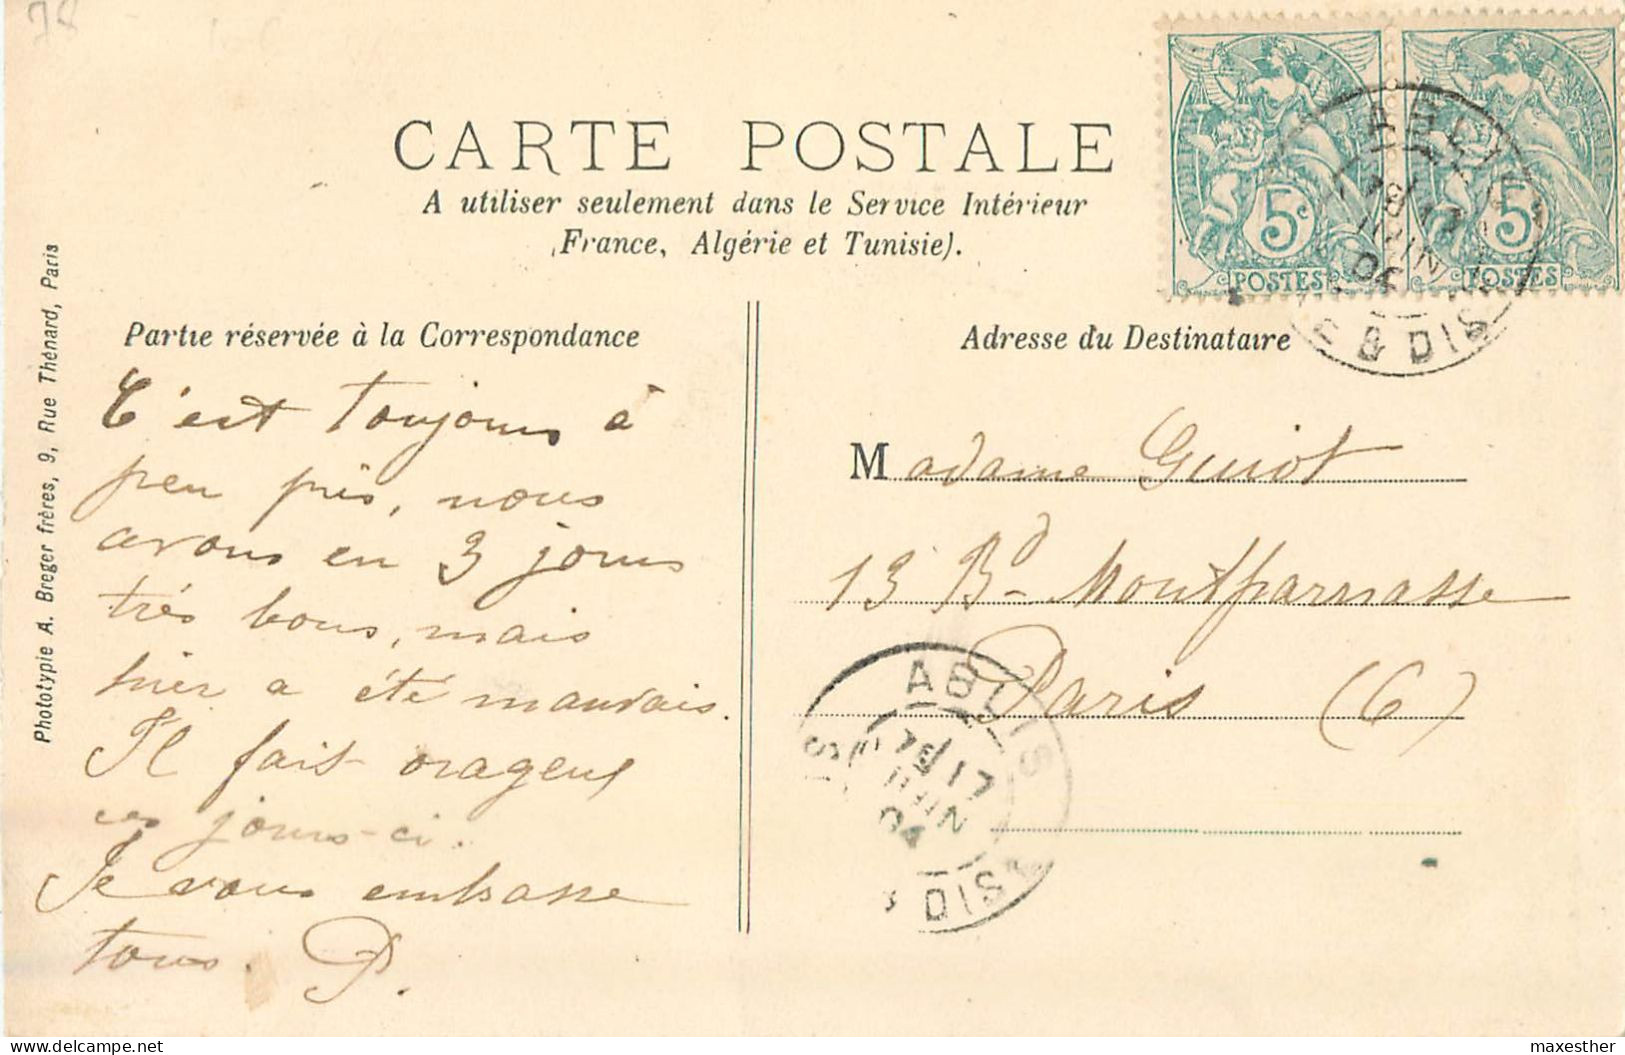 78
CARTE POSTALE
A utiliser seulement dans le Service Intérieur
(France, Algérie et Tunisie).
Partie réservée à la Correspondance
C'est toujours à
peu près, nous
avons eu 3 jours
très bons, mais
hier a été mauvais.
Il fait orageux
ces jours-ci.
Je vous embrasse
tous. P.
Phototypie A. Breger frères, 9, Rue Thénard, Paris
5c
POSTES
5c
POSTES
ABLIS
17
JUIN
04
& DIS
Adresse du Destinataire
Madame Guiot
13 Bd Montparnasse
Paris (6)
ABLIS
17
JUIN
04
DIS
delcampe.net
maxesther